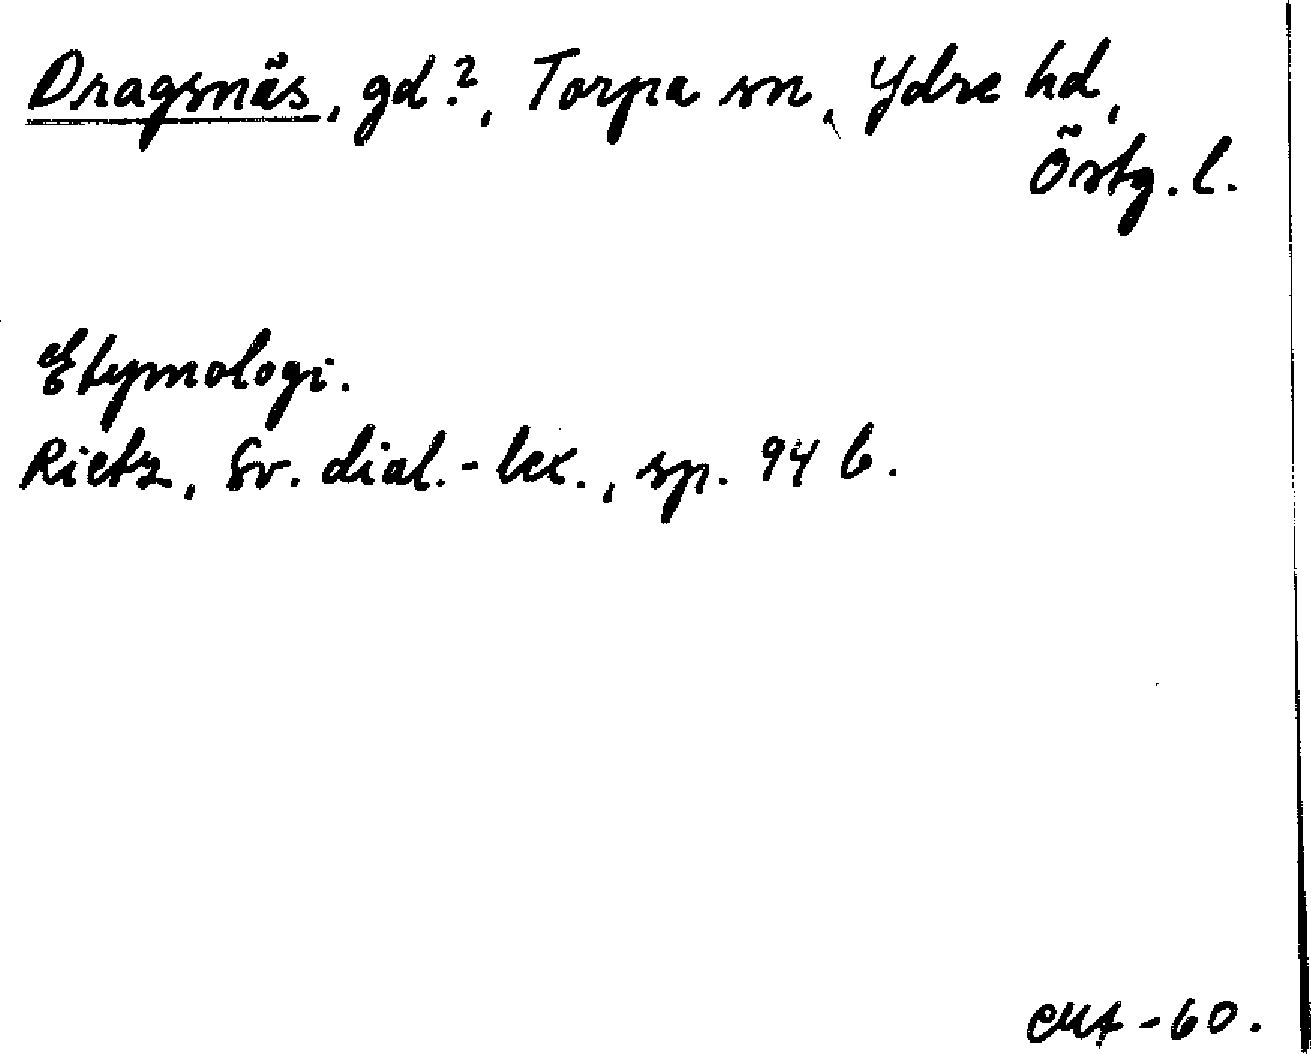 Dragsnäs, gd?, Torpa sn, Ydre hd,
Östg. l.
Etymologi.
Rietz, Sv. dial.-lex., sp. 94 b.
-60.